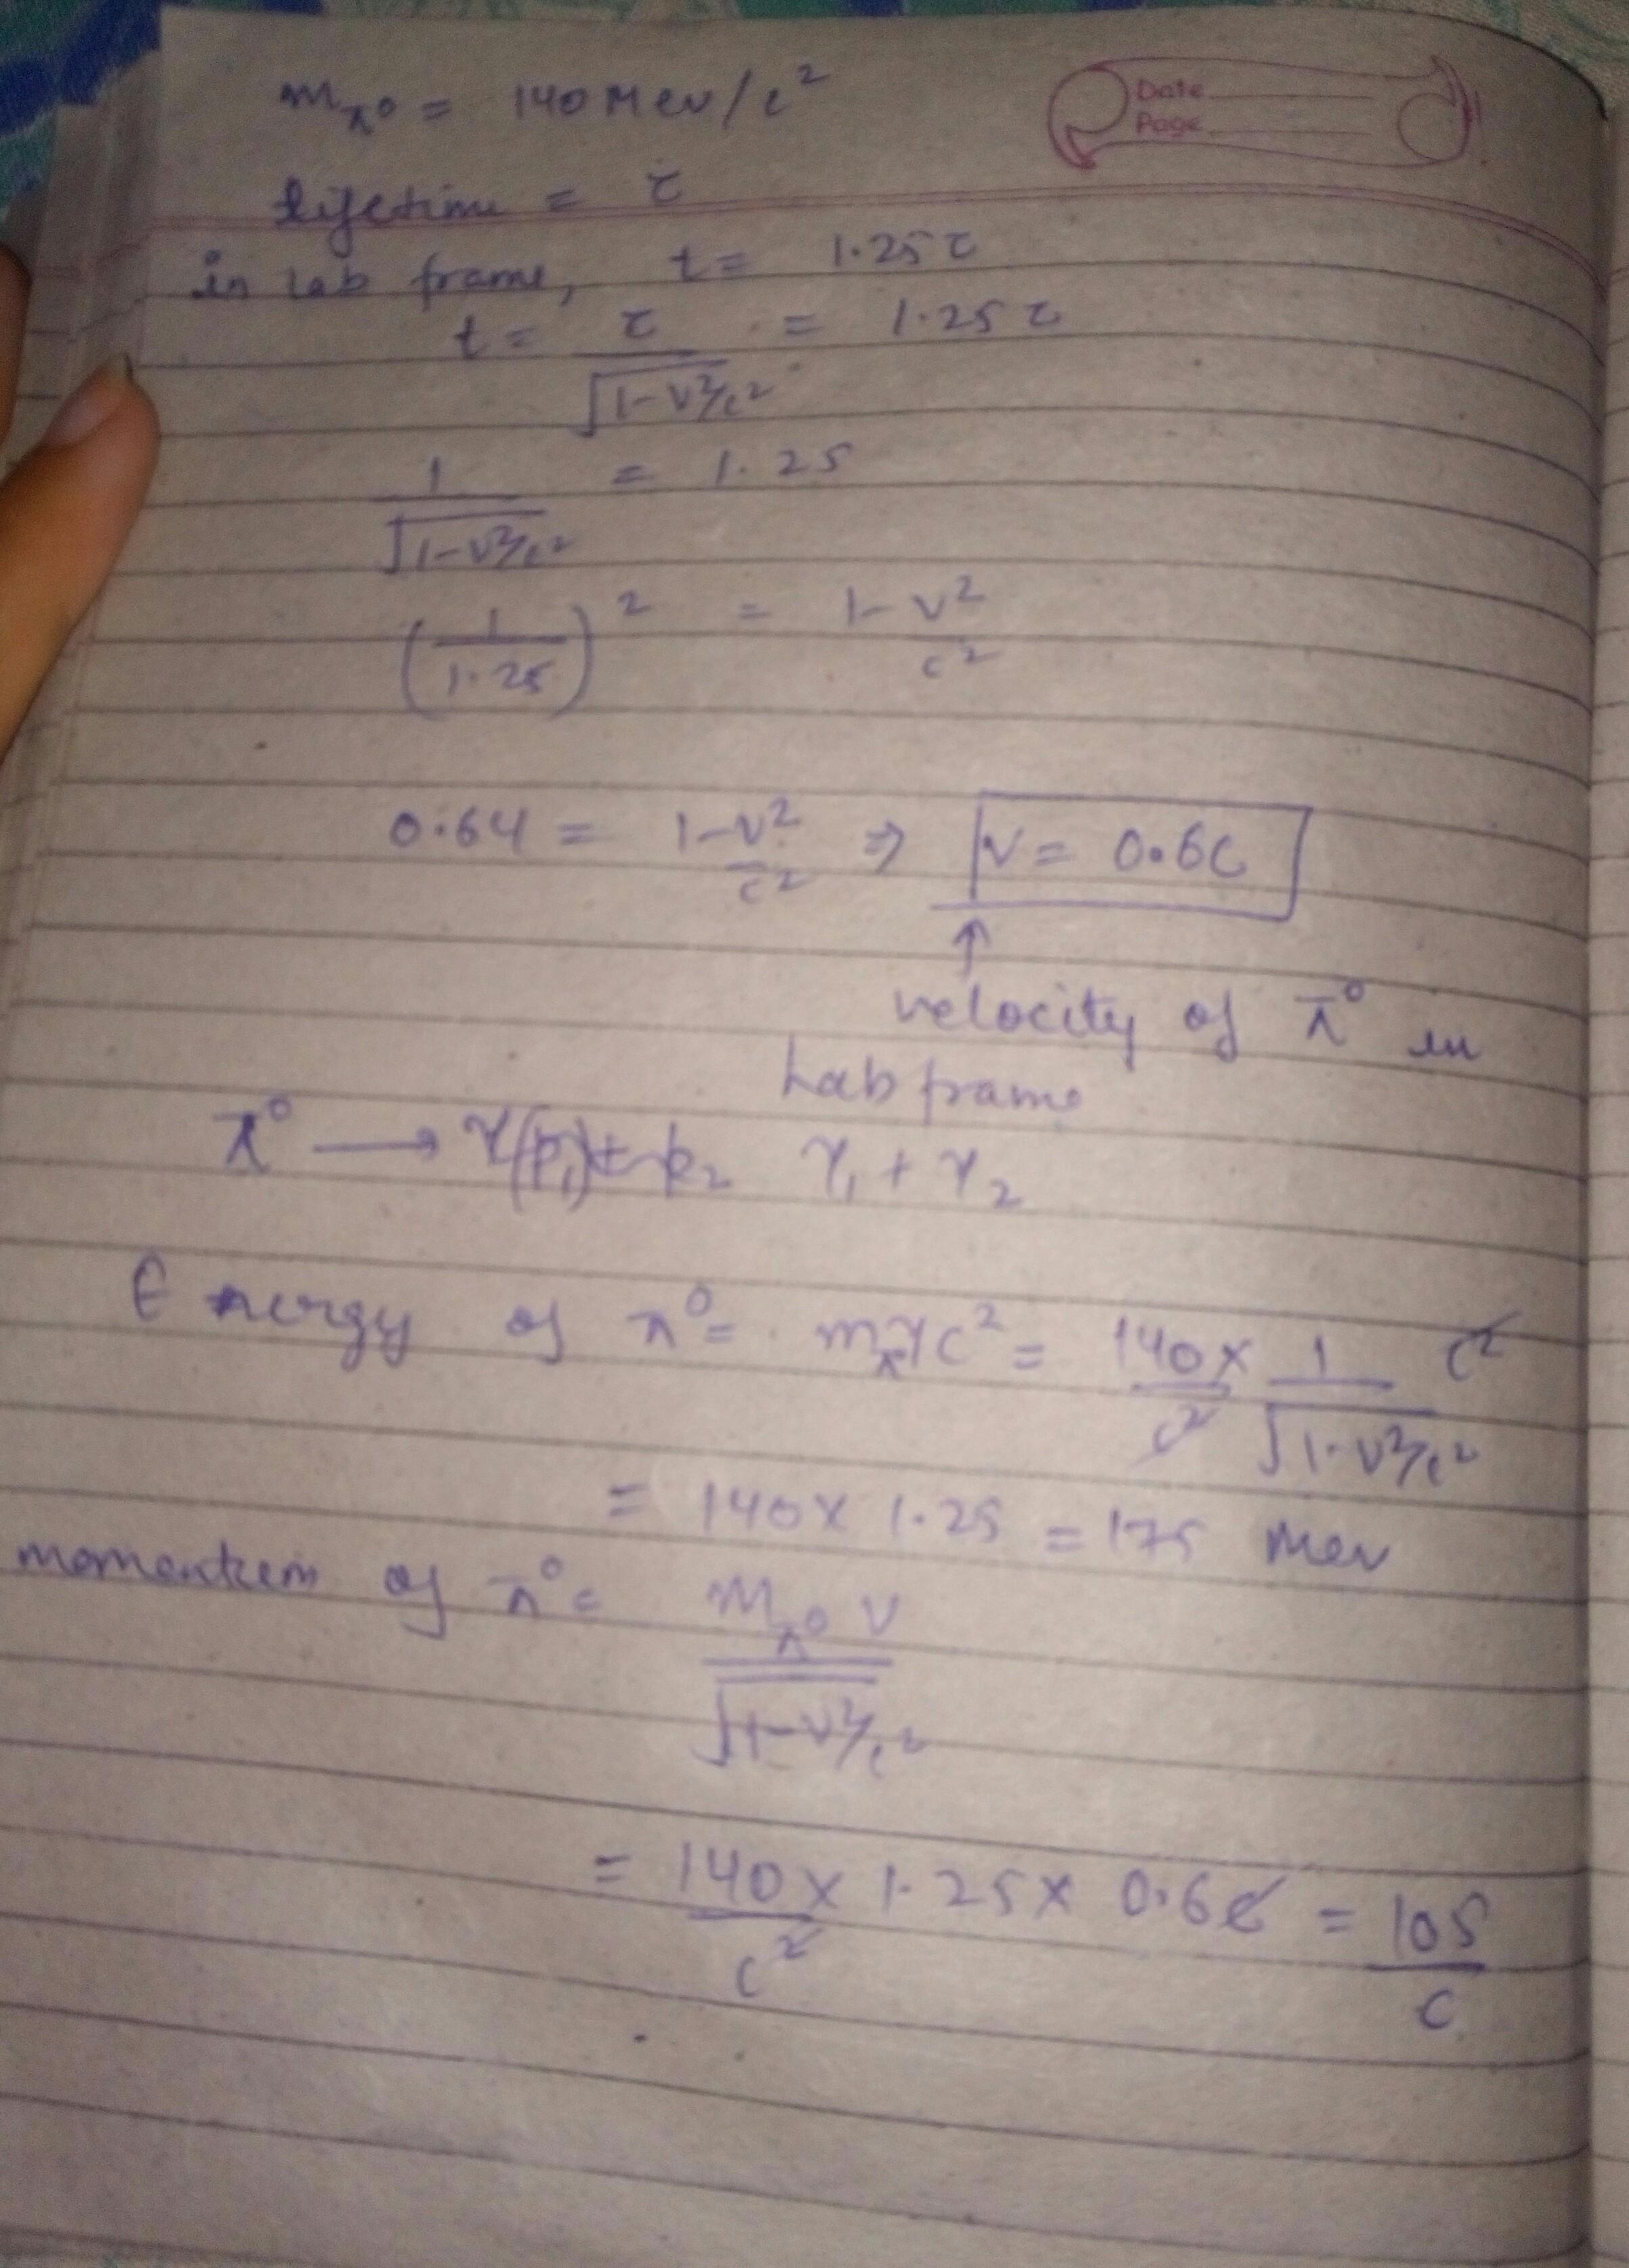 Date
Page
m_π⁰ = 140 Mev/c²
lifetime = τ
in lab frame, t = 1.25 τ
t = τ/√(1-v²/c²) = 1.25 τ
1/√(1-v²/c²) = 1.25
(1/1.25)² = 1 - v²/c²
0.64 = 1 - v²/c² ⇒ v = 0.6c
↑
velocity of π⁰ in
Lab frame
π⁰ → γ(p₁) + p₂ γ₁ + γ₂
Energy of π⁰ = m_π⁰ γ c² = 140/c² × 1/√(1-v²/c²) c²
= 140 × 1.25 = 175 Mev
momentum of π⁰ = m_π⁰ v/√(1-v²/c²)
= 140/c² × 1.25 × 0.6c = 105/c